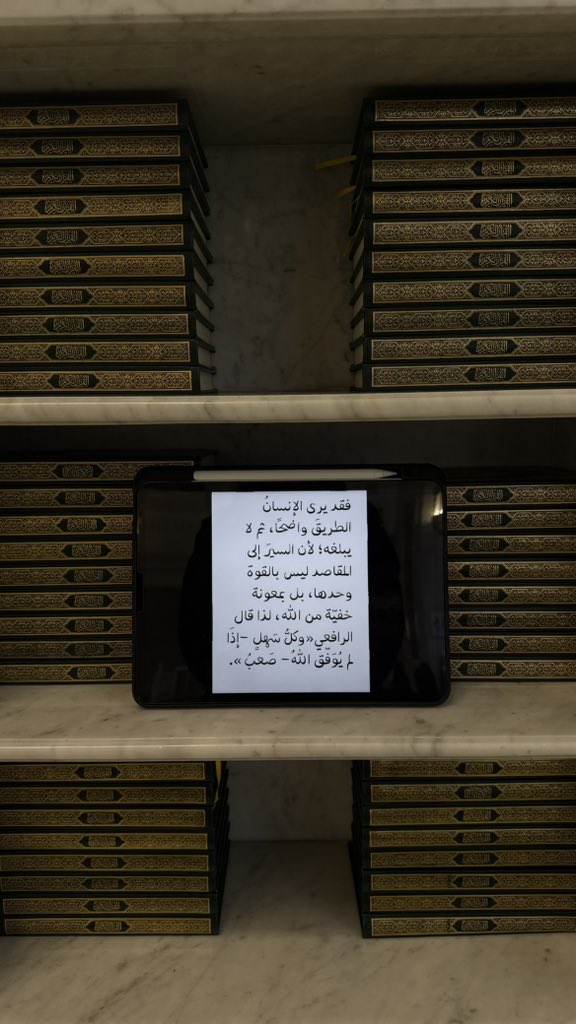 فقد يرى الإنسانُ
الطريقَ واضحًا، ثم لا
يبلغه؛ لأن السيرَ إلى
المقاصد ليس بالقوة
وحدها، بل بمعونة
خفيّة من الله، لذا قال
الرافعي«وكلُّ سَهلٍ –إذَا
لم يُوَفّق اللهُ– صَعبُ ».